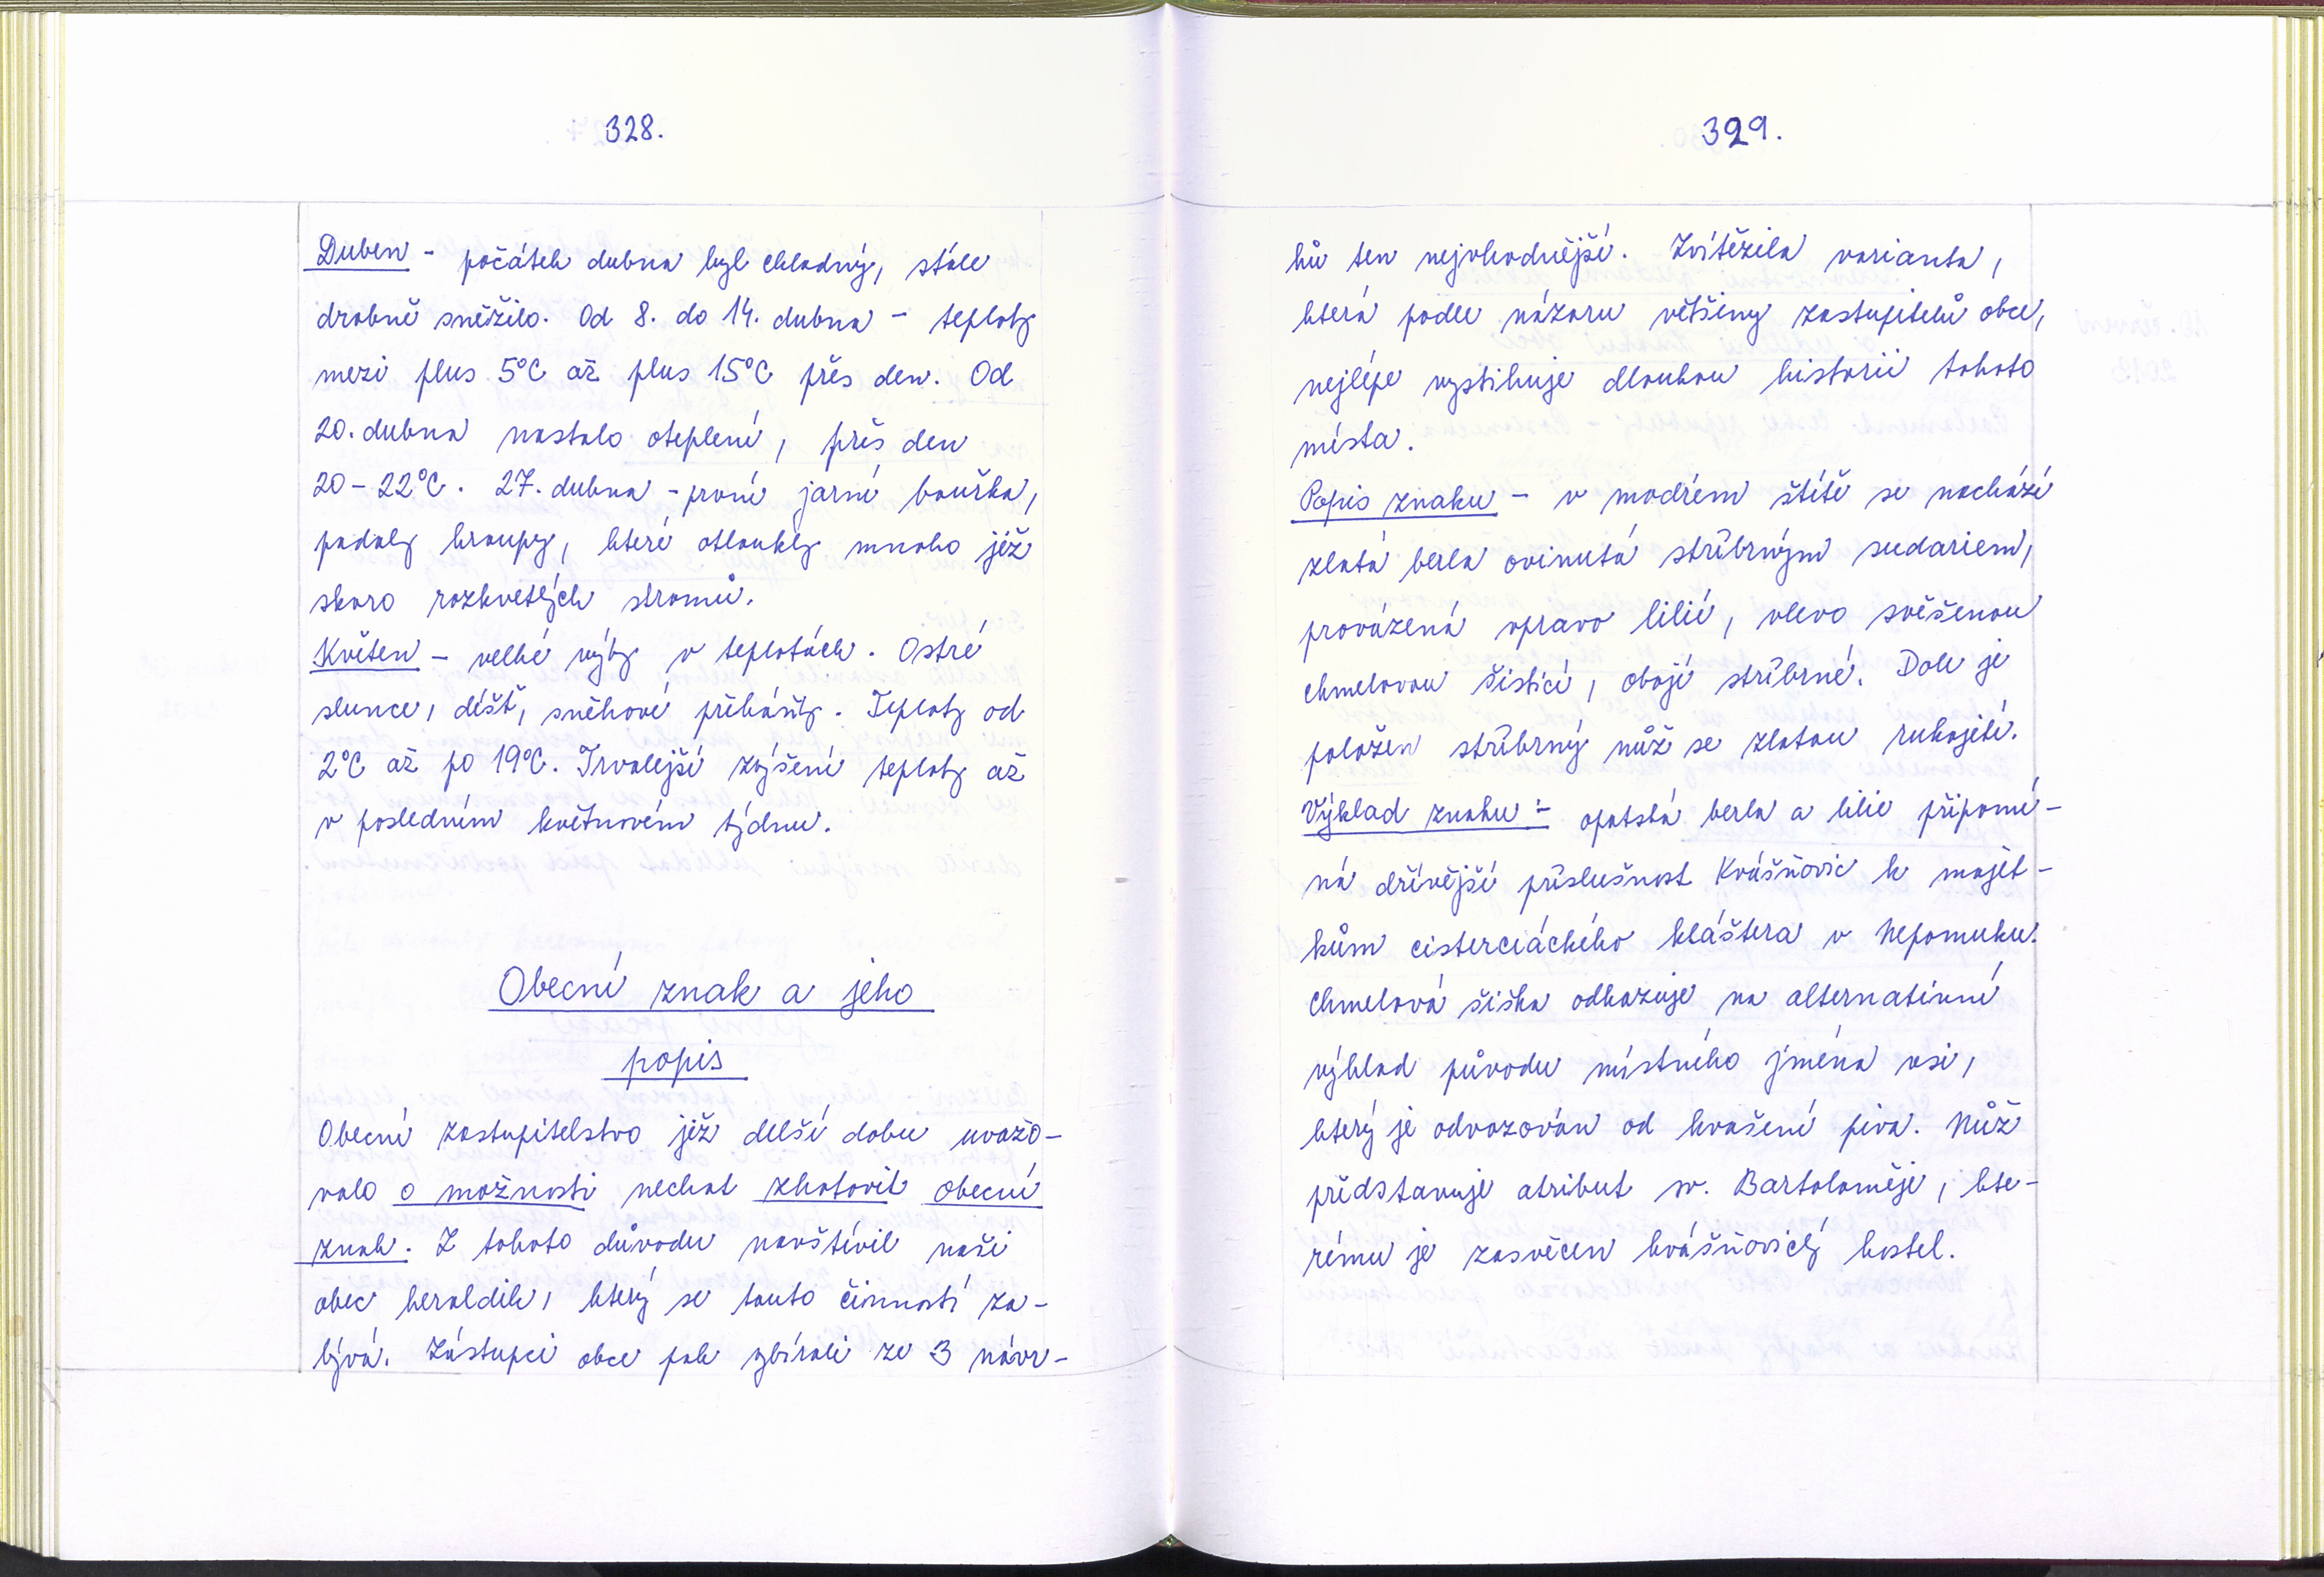 328.
Duben - počátek dubna byl chladný, stále
drobně sněžilo. Od 8. do 14. dubna - teploty
mezi plus 5°C až plus 15°C přes den. Od
20. dubna nastalo oteplení, přes den
20-22°C. 27. dubna - první jarní bouřka,
padaly kroupy, které otloukly mnoho již
skoro rozkvetlých stromů.
Květen - velké výky v teplotách. Ostré
slunce, déšť, sněhové přeháňky. Teploty od
2°C až po 19°C. Trvalejší zvýšení teploty až
v posledním květnovém týdnu.
Obecní znak a jeho
popis
Obecní zastupitelstvo již delší dobu uvažo-
valo o možnosti nechat zhotovit obecní
znak. Z tohoto důvodu navštívil naši
obec heraldik, který se touto činností za-
bývá. Zástupci obce pak vybírali ze 3 návr-
329.
hů ten nejvhodnější. Zvítězila varianta,
která podle názoru většiny zastupitelů obce,
nejlépe vystihuje dlouhou historii tohoto
místa.
Popis znaku - v modrém štítě se nachází
zlatá berla ovinutá stříbrným sudariem,
provázená vpravo lilií, vlevo svěšenou
chmelovou šišticí, obojí stříbrné. Dole je
položen stříbrný nůž se zlatou rukojetí.
Výklad znaku :- opatská berla a lilie připomí-
ná dřívější příslušnost Kvášňovic k majet-
kům cisterciáckého kláštera v Nepomuku.
Chmelová šiška odkazuje na alternativní
výklad původu místního jména vsi,
který je odvozován od kvašení piva. Nůž
představuje atribut sv. Bartoloměje, kte-
rému je zasvěcen kvášňovický kostel.